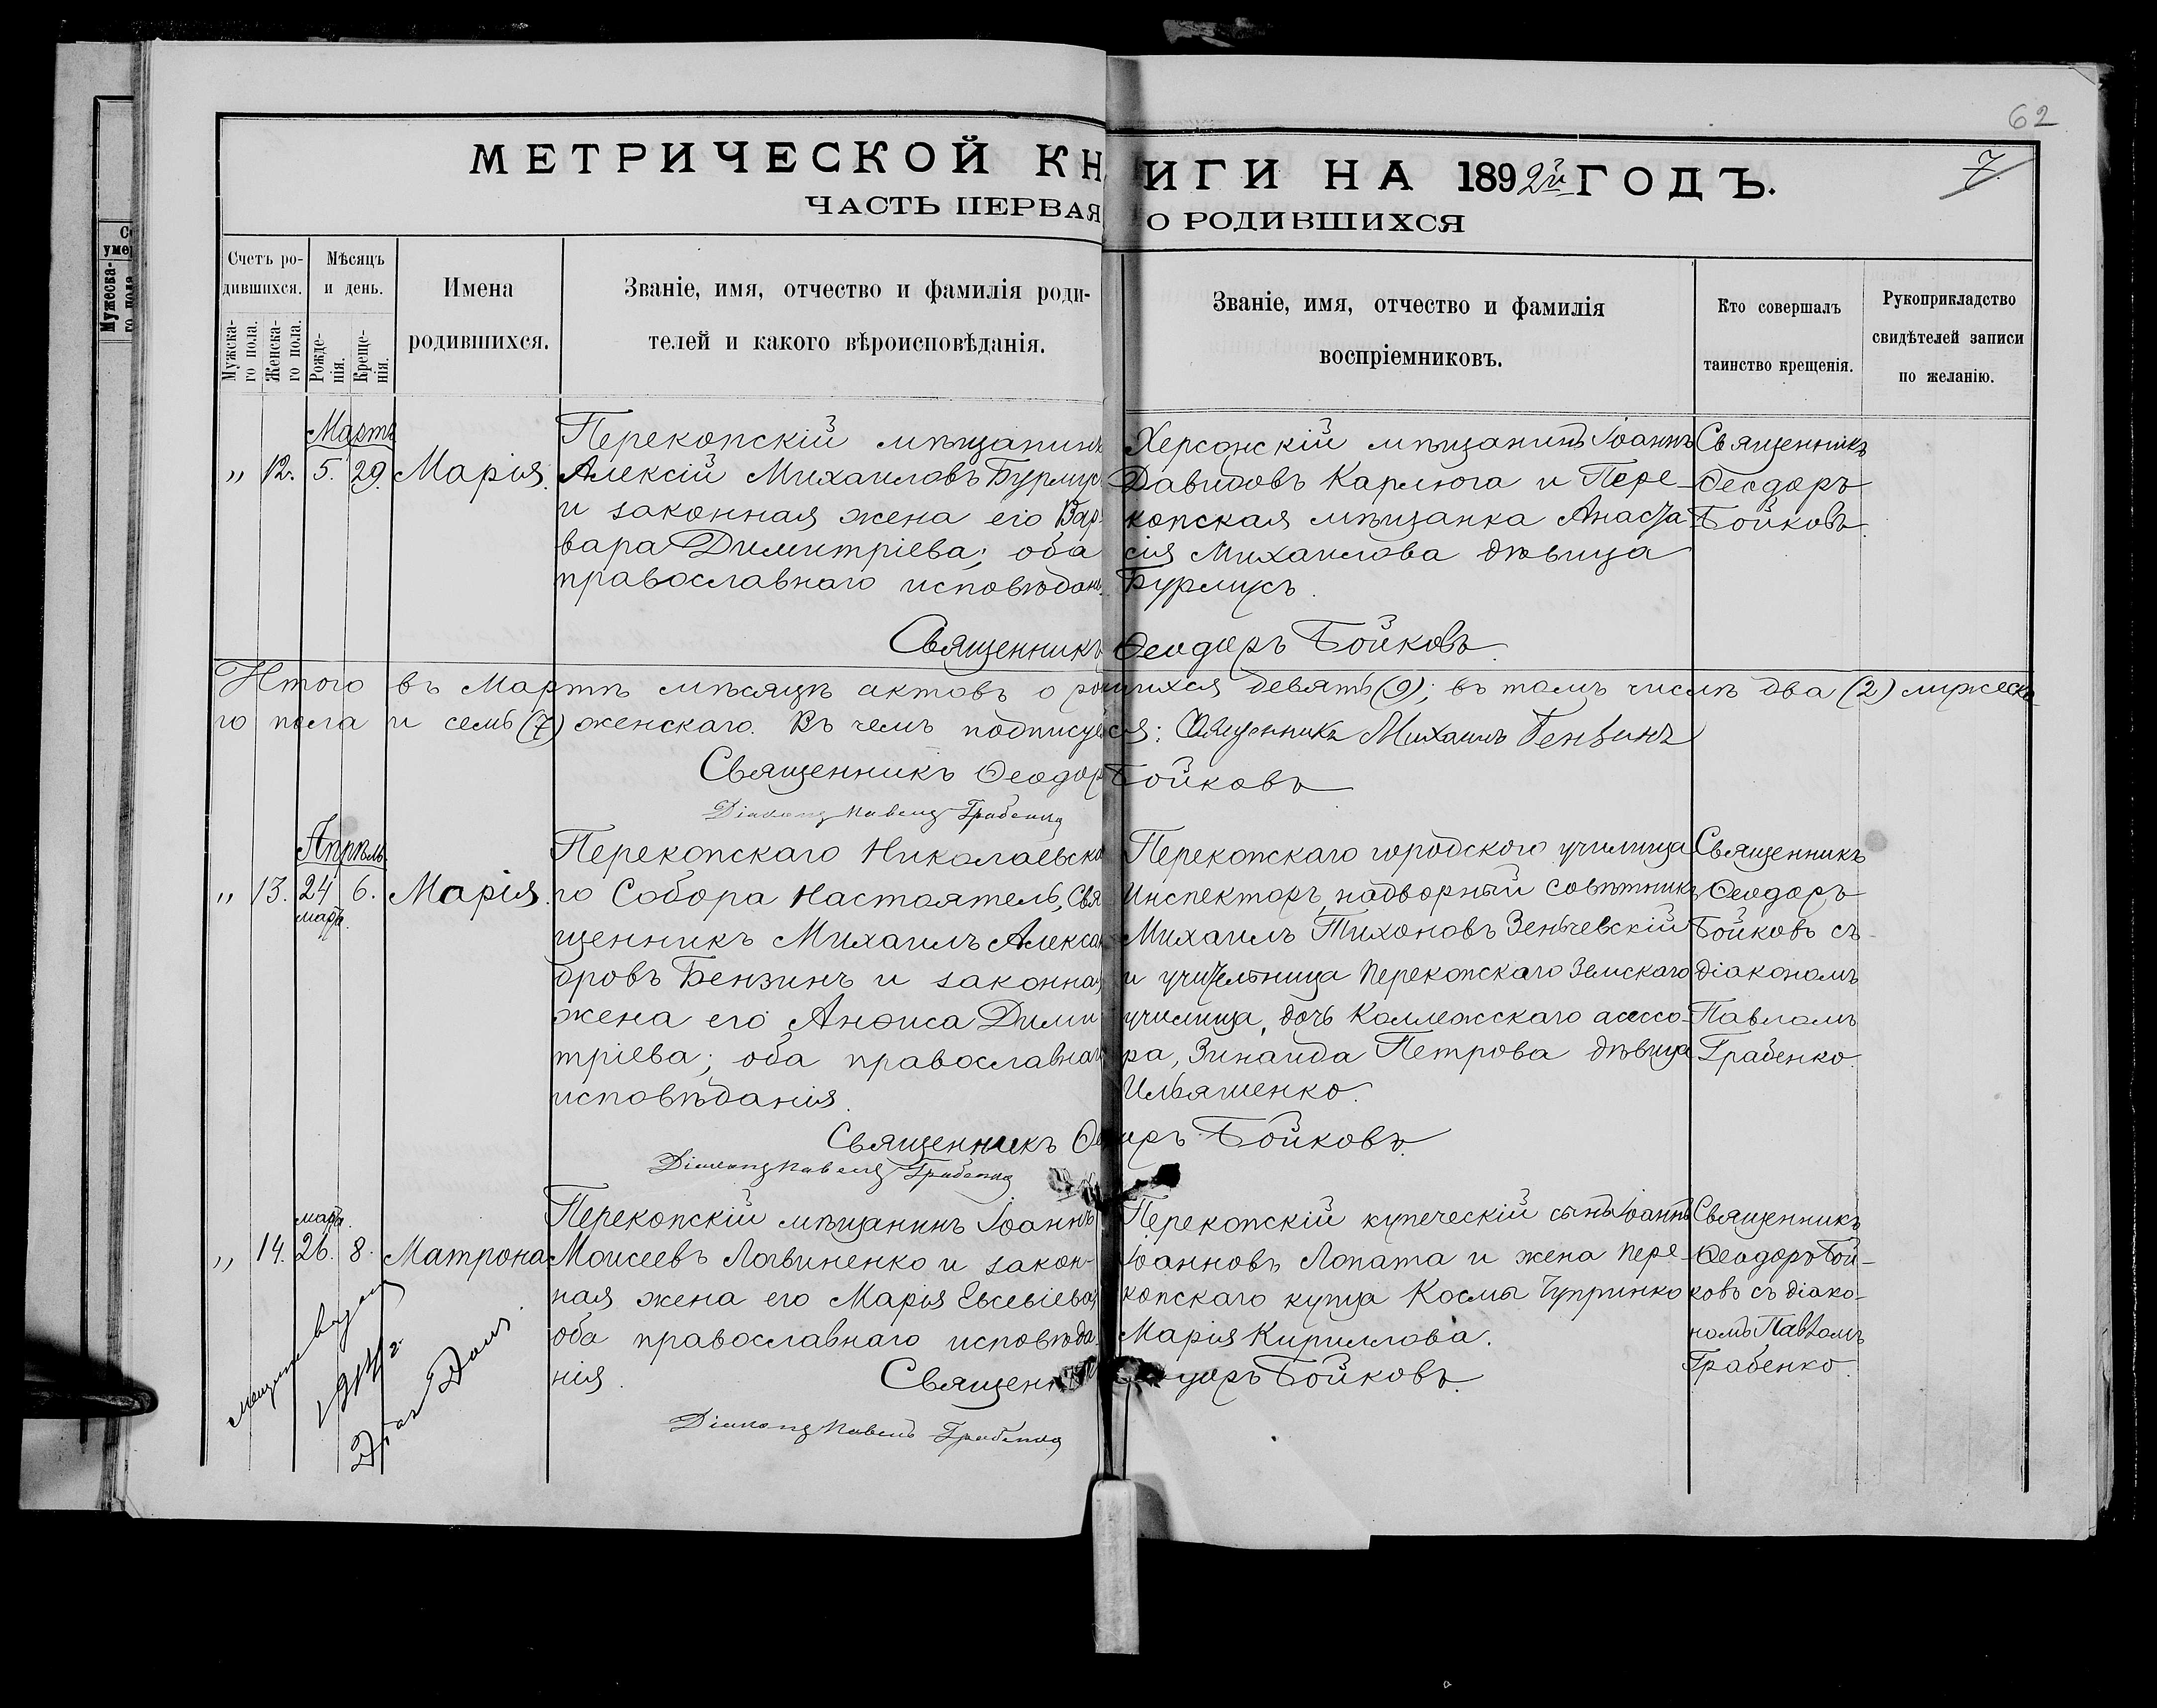 62
МЕТРИЧЕСКОЙ КНИГИ НА 1892й ГОДЪ.
7.
ЧАСТЬ ПЕРВАЯ О РОДИВШИХСЯ
Счетъ ро-
дившихся.
Мужска-
го пола.
Женска-
го пола.
Мѣсяцъ
и день.
Рожде-
нія.
Креще-
нія.
Имена
родившихся.
Званіе, имя, отчество и фамилія роди-
телей и какого вѣроисповѣданія.
Званіе, имя, отчество и фамилія
воспріемниковъ.
Кто совершалъ
таинство крещенія.
Рукоприкладство
свидѣтелей записи
по желанію.
Мартъ
" 12. 5. 29. Марія.
Перекопскій мѣщанинъ
Алексій Михаиловъ Бурлуц
и законная жена его Вар-
вара Димитріева; оба
православнаго исповѣдан.
Херсонскій мѣщанинъ Іоаннъ
Давидовъ Карлюга и Пере-
копская мѣщанка Анаста-
сія Михаилова дѣвица
Священникъ
Ѳеодоръ
Бойковъ.
Священникъ Ѳеодоръ Бойковъ.
Итого въ Мартѣ мѣсяцѣ актовъ о ро шихся девять (9); въ томъ числѣ два (2) мужеска-
го пола и семь (7) женскаго. Въ чемъ подписуемся: Священникъ Михаилъ Бензинъ
Священникъ Ѳеодоръ Бойковъ
Діаконъ Павелъ Грабенко
Апрѣль
" 13. 24 6. Марія.
марта.
Перекопскаго Николаевска-
го Собора Настоятель, Свя-
щенникъ Михаилъ Алексан-
дровъ Бензинъ и законная
жена его Анѳиса Дими-
тріева; оба православнаго
исповѣданія.
Перекопскаго городского училища
Инспекторъ, надворный совѣтникъ
Михаилъ Тихоновъ Зенчевскій
и учительница Перекопскаго Земскаго
училища, дочь Коллежскаго ассесо-
ра, Зинаида Петрова дѣвица
Ильяшенко.
Священникъ
Ѳеодоръ
Бойковъ съ
діакономъ
Павломъ
Грабенко.
Священникъ Ѳеодоръ Бойковъ.
Діаконъ Павелъ Грабенко
марта.
" 14. 26. 8. Матрона
Перекопскій мѣщанинъ Іоаннъ
Моисеевъ Логвиненко и закон-
ная жена его Марія Евсевіева;
оба православнаго исповѣда-
нія.
Перекопскій купеческій сынъ Іоаннъ
Іоанновъ Лопата и жена Пере-
копскаго купца Космы Чупринко
Марія Кириллова.
Священникъ
Ѳеодоръ Бой-
ковъ съ діако-
номъ Павломъ
Грабенко.
Священникъ Ѳеодоръ Бойковъ.
Діаконъ Павелъ Грабенко